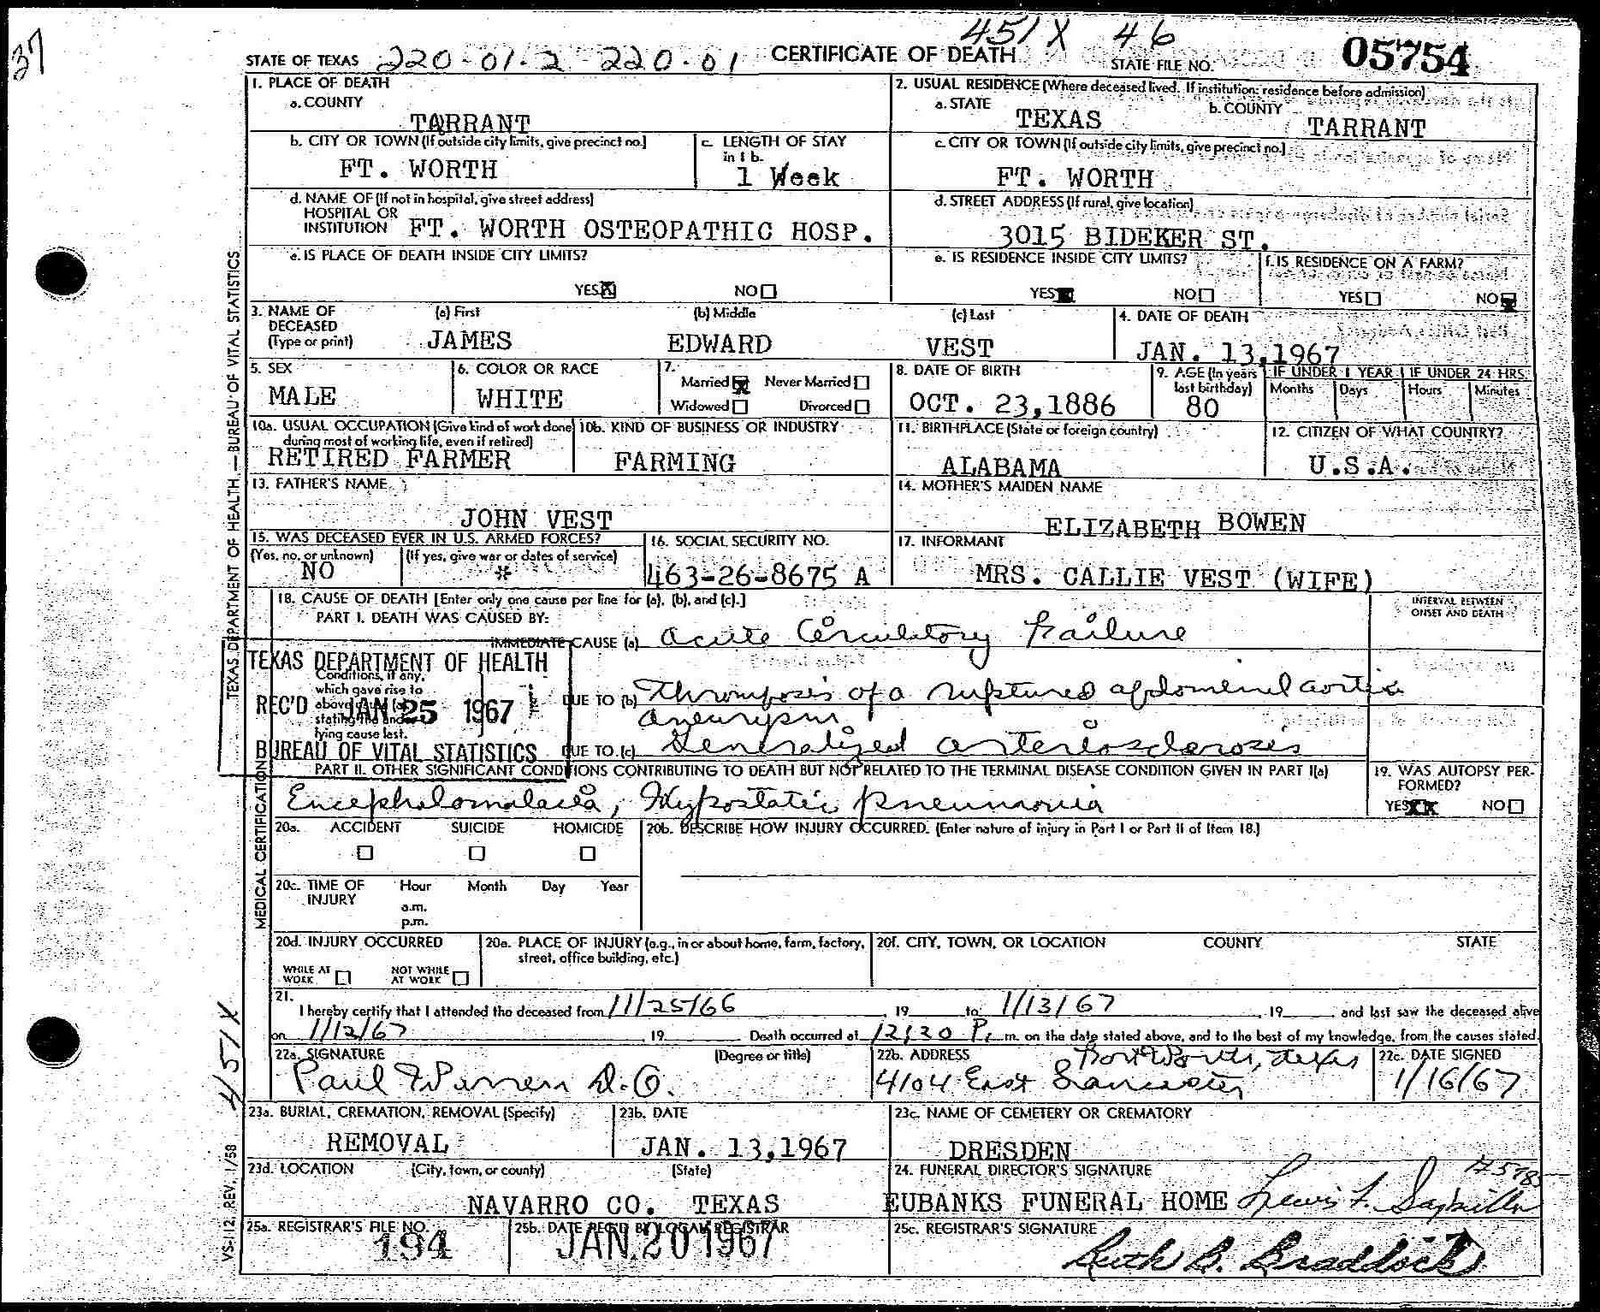 37
451X 46
STATE OF TEXAS 220-01-2 220-01 CERTIFICATE OF DEATH STATE FILE NO. 05754
1. PLACE OF DEATH
a. COUNTY
TARRANT
2. USUAL RESIDENCE (Where deceased lived. If institution: residence before admission)
a. STATE b. COUNTY
TEXAS TARRANT
b. CITY OR TOWN (If outside city limits, give precinct no.)
FT. WORTH
c. LENGTH OF STAY
in 1 b.
1 Week
c. CITY OR TOWN (If outside city limits, give precinct no.)
FT. WORTH
d. NAME OF (If not in hospital, give street address)
HOSPITAL OR
INSTITUTION FT. WORTH OSTEOPATHIC HOSP.
d. STREET ADDRESS (If rural, give location)
3015 BIDEKER ST.
e. IS PLACE OF DEATH INSIDE CITY LIMITS?
YES X NO
e. IS RESIDENCE INSIDE CITY LIMITS?
YES NO
f. IS RESIDENCE ON A FARM?
YES NO
3. NAME OF (a) First (b) Middle (c) Last
DECEASED
(Type or print) JAMES EDWARD VEST
4. DATE OF DEATH
JAN. 13,1967
5. SEX
MALE
6. COLOR OR RACE
WHITE
7.
Married Never Married
Widowed Divorced
8. DATE OF BIRTH
OCT. 23,1886
9. AGE (In years
last birthday)
80
IF UNDER 1 YEAR IF UNDER 24 HRS.
Months Days Hours Minutes
10a. USUAL OCCUPATION (Give kind of work done
during most of working life, even if retired)
RETIRED FARMER
10b. KIND OF BUSINESS OR INDUSTRY
FARMING
11. BIRTHPLACE (State or foreign country)
ALABAMA
12. CITIZEN OF WHAT COUNTRY?
U.S.A.
13. FATHER'S NAME
JOHN VEST
14. MOTHER'S MAIDEN NAME
ELIZABETH BOWEN
15. WAS DECEASED EVER IN U.S. ARMED FORCES?
(Yes, no, or unknown) (If yes, give war or dates of service)
NO *
16. SOCIAL SECURITY NO.
463-26-8675 A
17. INFORMANT
MRS. CALLIE VEST (WIFE)
18. CAUSE OF DEATH [Enter only one cause per line for (a), (b), and (c).]
PART I. DEATH WAS CAUSED BY:
INTERVAL BETWEEN
ONSET AND DEATH
IMMEDIATE CAUSE (a) Acute Circulatory Failure
TEXAS DEPARTMENT OF HEALTH
REC'D JAN 25 1967
BUREAU OF VITAL STATISTICS
Conditions, if any,
which gave rise to
above cause (a)
stating the under-
lying cause last.
DUE TO (b) Thrombosis of a ruptured abdominal aortic
aneurysm
DUE TO (c) Generalized arteriosclerosis
PART II. OTHER SIGNIFICANT CONDITIONS CONTRIBUTING TO DEATH BUT NOT RELATED TO THE TERMINAL DISEASE CONDITION GIVEN IN PART I(a)
Encephalomalacia, Hypostatic pneumonia
19. WAS AUTOPSY PER-
FORMED?
YES XX NO
20a. ACCIDENT SUICIDE HOMICIDE
20b. DESCRIBE HOW INJURY OCCURRED. (Enter nature of injury in Part I or Part II of Item 18.)
20c. TIME OF Hour Month Day Year
INJURY
a.m.
p.m.
20d. INJURY OCCURRED
WHILE AT
WORK
NOT WHILE
AT WORK
20e. PLACE OF INJURY (e.g., in or about home, farm, factory,
street, office building, etc.)
20f. CITY, TOWN, OR LOCATION COUNTY STATE
21.
I hereby certify that I attended the deceased from 11/25/66 19 to 1/13/67 , 19 and last saw the deceased alive
on 1/12/67 19 Death occurred at 12:30 P. m. on the date stated above, and to the best of my knowledge, from the causes stated.
22a. SIGNATURE (Degree or title)
Paul D.O.
22b. ADDRESS Fort Worth, Texas
4104 East Lancaster
22c. DATE SIGNED
1/16/67
23a. BURIAL, CREMATION, REMOVAL (Specify)
REMOVAL
23b. DATE
JAN. 13,1967
23c. NAME OF CEMETERY OR CREMATORY
DRESDEN
23d. LOCATION (City, town, or county) (State)
NAVARRO CO. TEXAS
24. FUNERAL DIRECTOR'S SIGNATURE
EUBANKS FUNERAL HOME Lewis F.
25a. REGISTRAR'S FILE NO.
194
25b. DATE REC'D BY LOCAL REGISTRAR
JAN 20 1967
25c. REGISTRAR'S SIGNATURE
Ruth B. Braddock
TEXAS DEPARTMENT OF HEALTH — BUREAU OF VITAL STATISTICS
MEDICAL CERTIFICATION
451X
VS-112, REV. 1/58